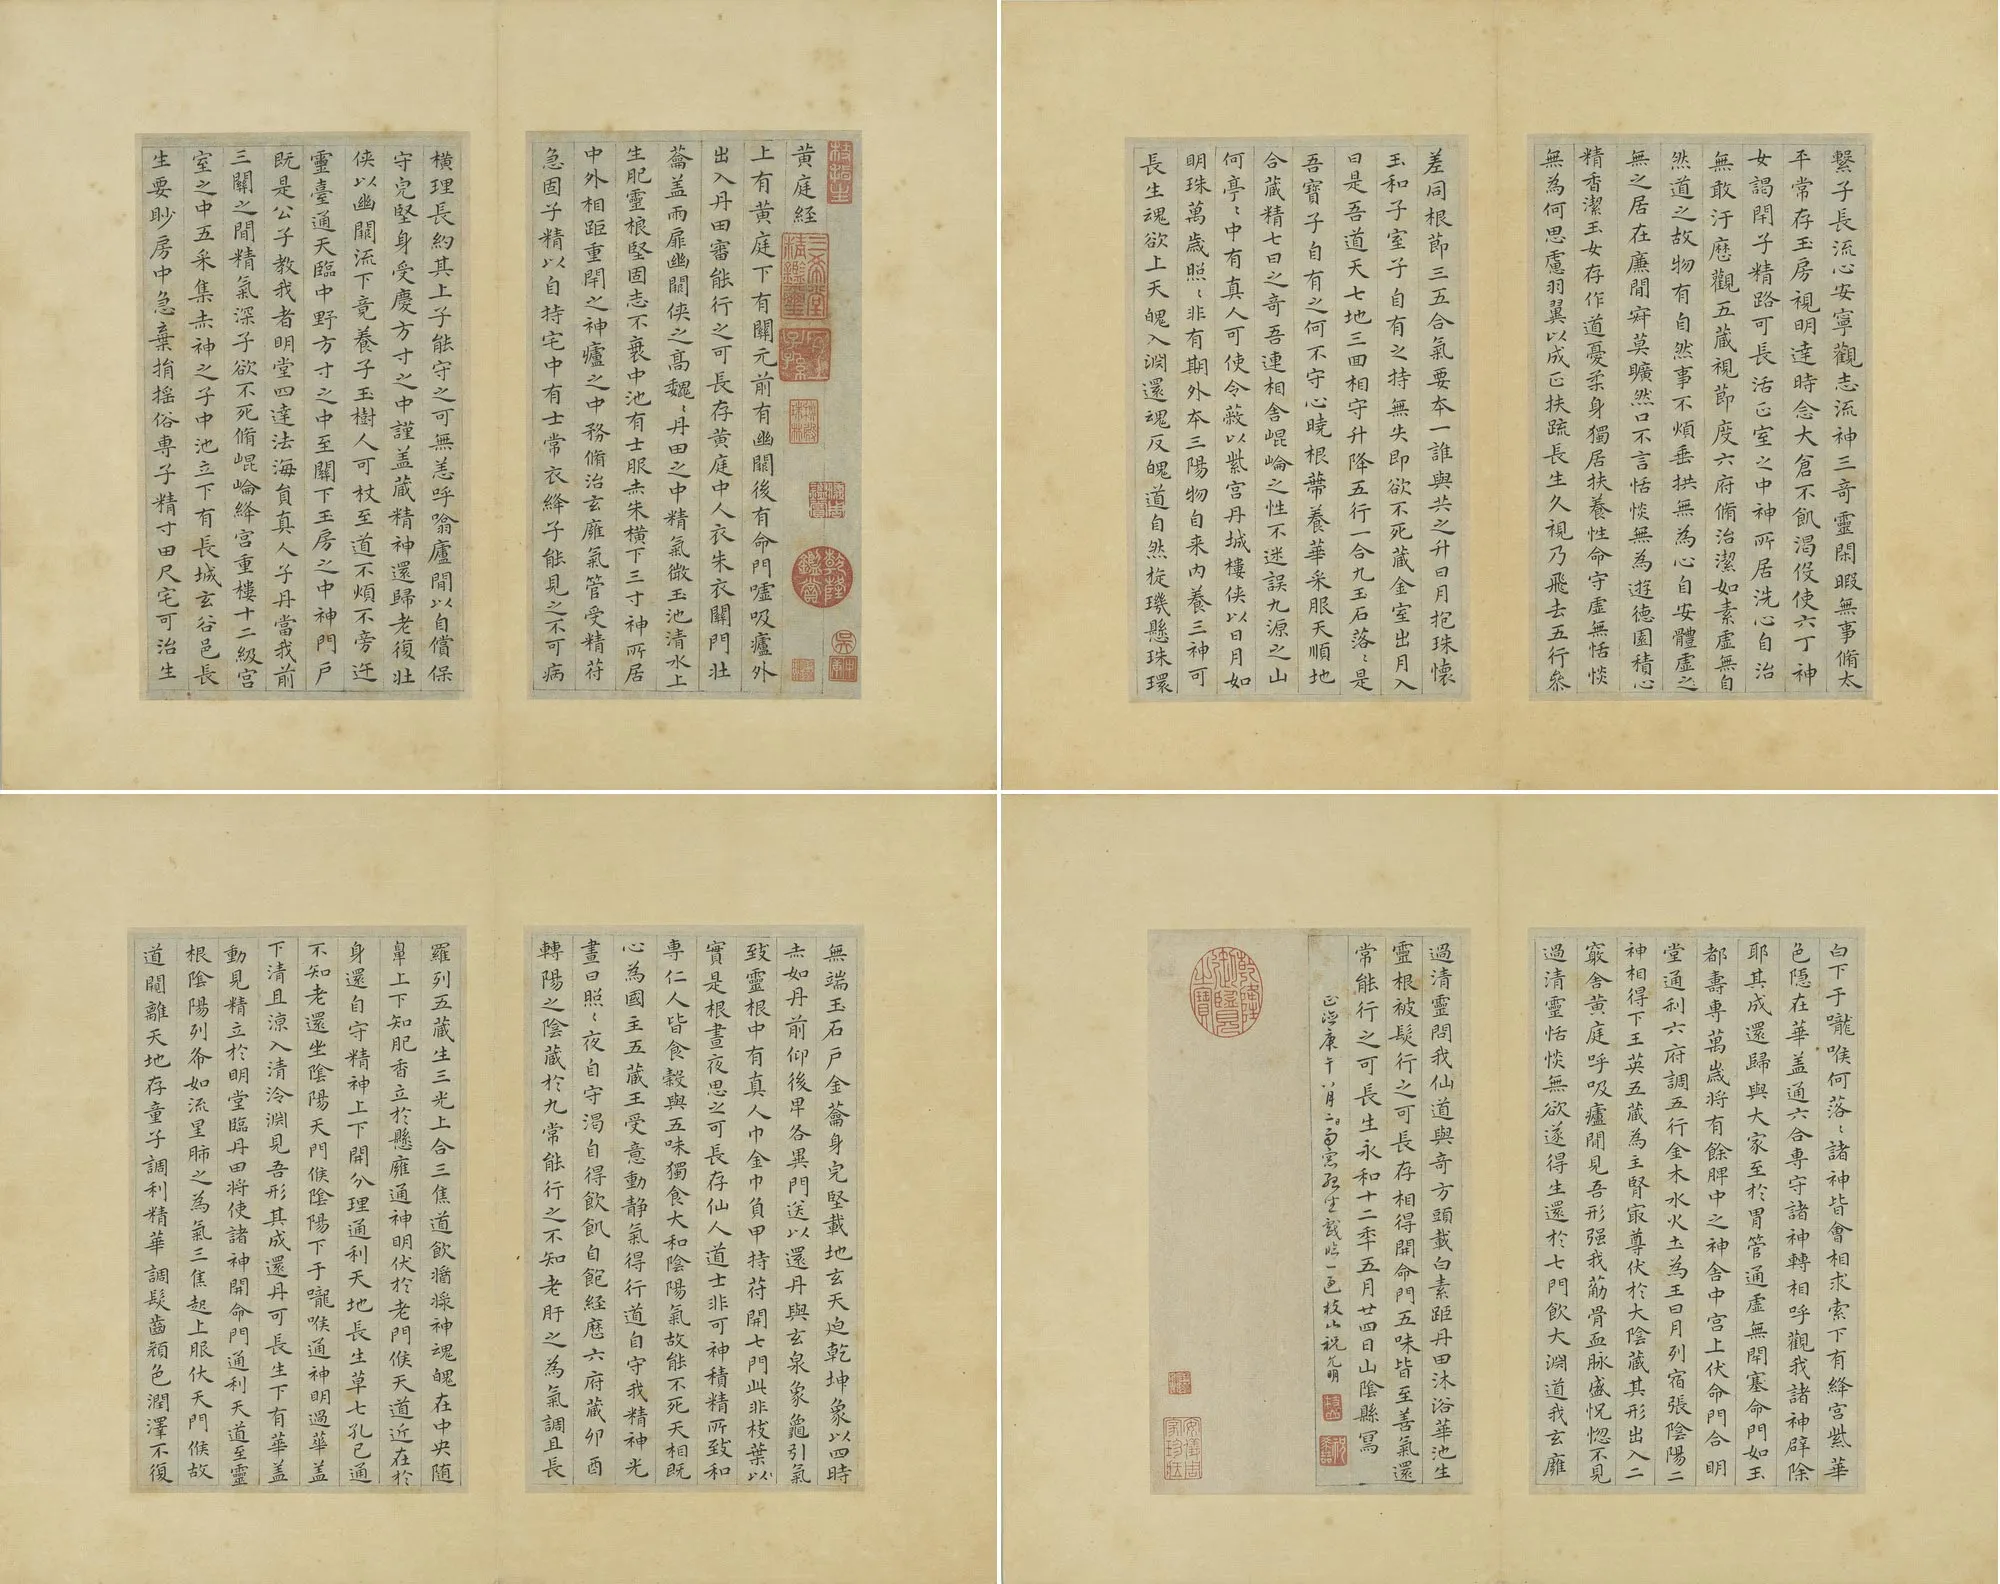 黄庭経
上有黄庭下有關元前有幽闕後有命門嘘吸廬外
出入丹田審能行之可長存黄庭中人衣朱衣關門壯
蘥盖兩扉幽闕俠之高巍〻丹田之中精氣微玉池清水上
生肥靈根堅固志不衰中池有士服赤朱横下三寸神所居
中外相距重閇之神廬之中務脩治玄廱氣管受精苻
急固子精以自持宅中有士常衣絳子能見之不可病
横理長約其上子能守之可無恙呼噏廬間以自償保
守完堅身受慶方寸之中謹盖藏精神還歸老復壯
俠以幽闕流下竟養子玉樹人可杖至道不煩不旁迕
靈臺通天臨中野方寸之中至關下玉房之中神門户
既是公子教我者明堂四達法海員真人子丹當我前
三關之間精氣深子欲不死脩崐崘絳宫重樓十二級宫
室之中五采集赤神之子中池立下有長城玄谷邑長
生要眇房中急棄捐揺俗専子精寸田尺宅可治生
繫子長流心安寧觀志流神三奇靈閑暇無事脩太
平常存玉房視明達時念大倉不飢渴役使六丁神
女謁閇子精路可長活正室之中神所居洗心自治
無敢汙歷觀五藏視節度六府脩治潔如素虚無自
然道之故物有自然事不煩垂拱無為心自安體虚之
無之居在廉間寂莫曠然口不言恬惔無為遊德園積心
精香潔玉女存作道憂柔身獨居扶養性命守虚無恬惔
無為何思慮羽翼以成正扶疏長生久視乃飛去五行叅
差同根節三五合氣要夲一誰與共之升日月抱珠懷
玉和子室子自有之持無失即欲不死藏金室出月入
日是吾道天七地三回相守升降五行一合九玉石落〻是
吾寶子自有之何不守心曉根蔕養華采服天順地
合藏精七日之奇吾連相舍崐崘之性不迷誤九源之山
何亭〻中有真人可使令蔽以紫宫丹城樓俠以日月如
明珠萬歲照〻非有期外夲三陽物自来内養三神可
長生魂欲上天魄入淵還魂反魄道自然旋璣懸珠環
無端玉石戸金蘥身完堅載地玄天迫乾坤象以四時
赤如丹前仰後畀各異門送以還丹與玄泉象龜引氣
致靈根中有真人巾金巾負甲持苻開七門此非枝葉以
實是根晝夜思之可長存仙人道士非可神積精所致和
専仁人皆食榖與五味獨食大和陰陽氣故能不死天相既
心為國主五藏王受意動静氣得行道自守我精神光
晝日照〻夜自守渴自得飲飢自飽経歷六府藏卯酉
轉陽之陰藏於九常能行之不知老肝之為氣調且長
羅列五藏生三光上合三焦道飲醬漿神魂魄在中央随
鼻上下知肥香立於懸廱通神明伏於老門候天道近在於
身還自守精神上下開分理通利天地長生草七孔已通
不知老還坐陰陽天門候陰陽下于嚨喉通神明過華盖
下清且涼入清泠淵見吾形其成還丹可長生下有華盖
動見精立於明堂臨丹田将使諸神開命門通利天道至靈
根陰陽列布如流星肺之為氣三焦起上服伏天門候故
道闚離天地存童子調利精華調髮齒顔色潤澤不復
白下于嚨喉何落〻諸神皆會相求索下有絳宫紫華
色隠在華盖通六合専守諸神轉相呼觀我諸神辟除
耶其成還歸與大家至於胃管通虚無閇塞命門如玉
都壽専萬歲将有餘脾中之神舍中宫上伏命門合明
堂通利六府調五行金木水火圡為王日月列宿張陰陽二
神相得下玉英五藏為主腎㝡尊伏於大陰藏其形出入二
竅舍黄庭呼吸廬間見吾形强我葪骨血脉盛怳惚不見
過清靈恬惔無欲遂得生還於七門飲大淵道我玄廱
過清靈問我仙道與奇方頭載白素距丹田沐浴華池生
靈根被髮行之可長存相得開命門五味皆至善氣還
常能行之可長生永和十二年五月廿四日山陰縣寫
正德庚午八月二日雨窓孫生戲臨一過枝山祝允明